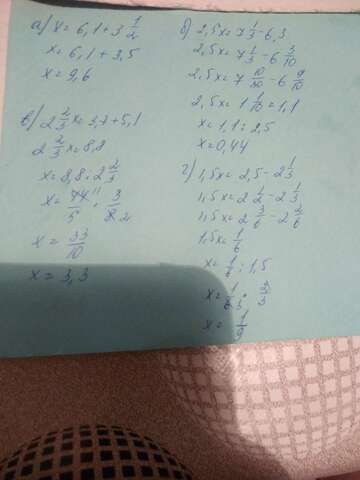 а) x = 6,1 + 3 1/2
x = 6,1 + 3,5
x = 9,6
в) 2 2/3 x = 3,7 + 5,1
2 2/3 x = 8,8
x = 8,8 : 2 2/3
x = 44 11/5 · 3/8 2
x = 33/10
x = 3,3
б) 2,5x = 7 1/3 - 6,3
2,5x = 7 1/3 - 6 3/10
2,5x = 7 10/30 - 6 9/10
2,5x = 1 1/10 = 1,1
x = 1,1 : 2,5
x = 0,44
г) 1,5x = 2,5 - 2 1/3
1,5x = 2 1/2 - 2 1/3
1,5x = 2 3/6 - 2 2/6
1,5x = 1/6
x = 1/6 : 1,5
x = 1/6 3 · 2/3
x = 1/9